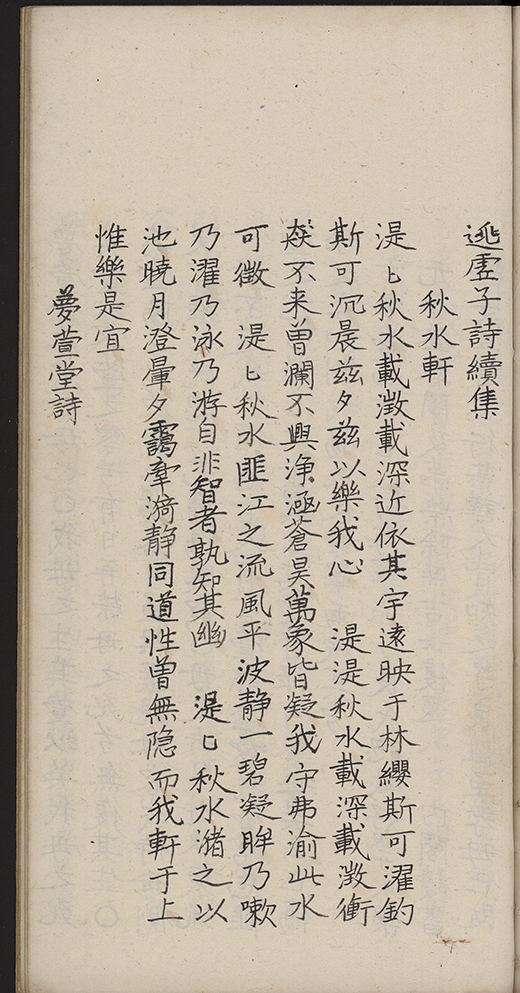 逃虛子詩續集
秋水軒
湜〻秋水載澂載深近依其宇遠映于林纓斯可濯釣
斯可沉晨兹夕兹以樂我心 湜湜秋水載深載澂衝
猋不来曽瀾不興浄涵蒼昊萬象皆凝我守弗渝此水
可徴 湜〻秋水匪江之流風平波静一碧凝眸乃嗽
乃濯乃泳乃游自非智者孰知其幽 湜〻秋水潴之以
池曉月澄暈夕靄牽漪静同道性曽無隐而我軒于上
惟樂是宜
夢萱堂詩